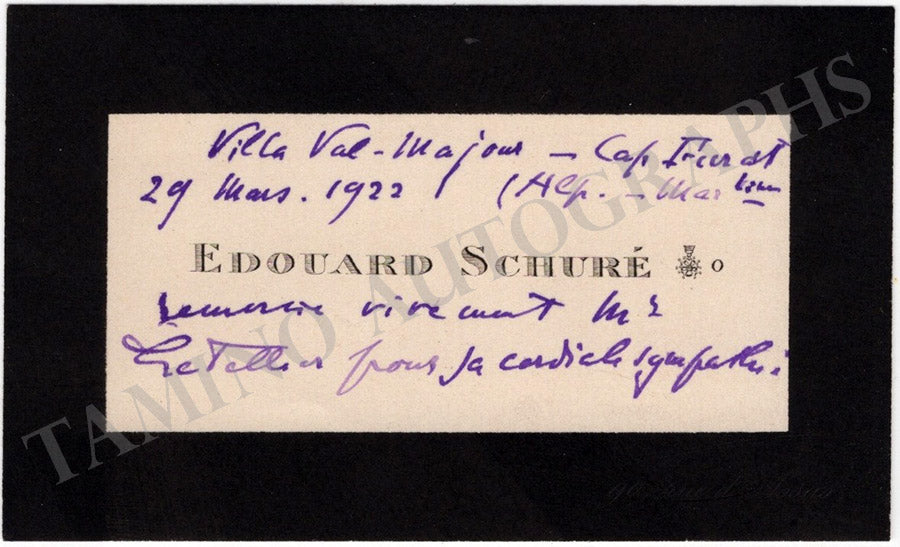 Villa Val-Majour – Cap Ferrat
29 Mars. 1922 (Alp. – Maritimes
EDOUARD SCHURÉ o
remercie vivement Mr
LeTellier pour sa cordiale sympathie
TAMINO AUTOGRAPHS